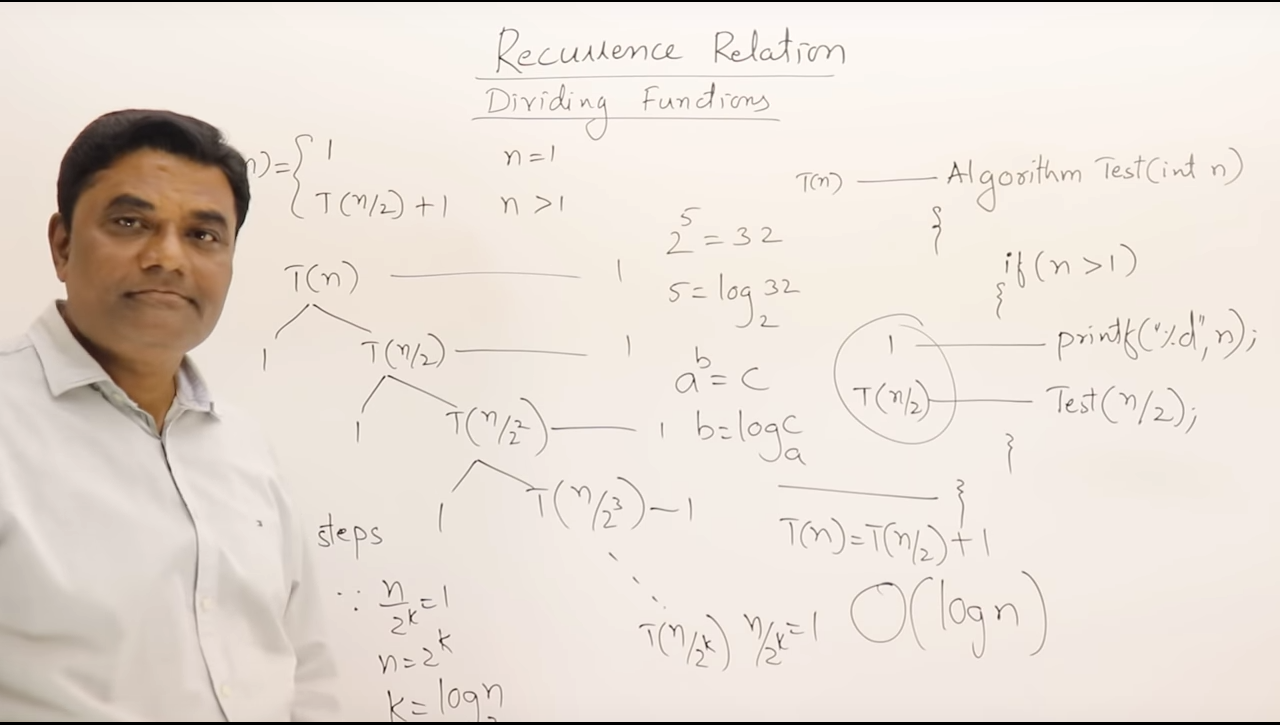 Recurrence Relation
Dividing Functions
n) = { 1 n=1
T(n/2) + 1 n >1
T(n) 1
1 T(n/2) 1
1 T(n/2²) 1
1 T(n/2³) — 1
T(n/2ᵏ) n/2ᵏ=1
steps
∵ n/2ᵏ=1
n=2ᵏ
k= log₂n
2⁵ = 32
5= log₂32
aᵇ = c
b= logₐc
T(n) Algorithm Test(int n)
{
if (n >1)
{
1 printf("%d", n);
T(n/2) Test(n/2);
}
}
T(n)=T(n/2)+1
O(logn)